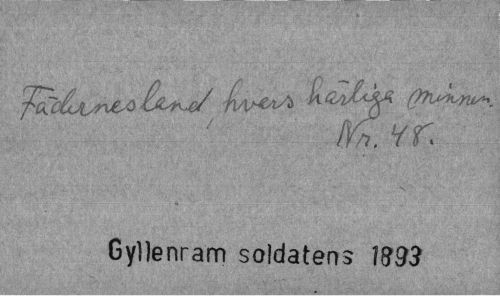 Fädernesland, hvers härliga minnen.
Nr. 48.
Gyllenram soldatens 1893